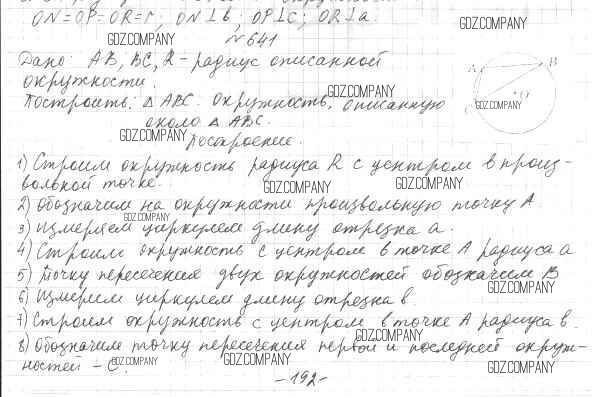 ON=OP=OR=r, ON⊥b; OP⊥c; OR⊥a.
GDZ.COMPANY
GDZ.COMPANY
N 641
Дано: AB, BC, R - радиус описанной
окружности.
GDZ.COMPANY
A
B
O
C
GDZ.COMPANY
Построить: △ABC. окружность, описанную
около △ABC.
GDZ.COMPANY
Построение.
1) Строим окружность радиуса R с центром в произ-
вольной точке.
GDZ.COMPANY
GDZ.COMPANY
2) Обозначим на окружности произвольную точку A.
GDZ.COMPANY
3) Измеряем циркулем длину отрезка a.
4) Строим окружность с центром в точке A радиуса a
5) Точку пересечения двух окружностей обозначим B
GDZ.COMPANY
6) Измерим циркулем длину отрезка b.
7) Строим окружность с центром в точке A радиуса b.
GDZ.COMPANY
8) Обозначим точку пересечения первой и последней окруж-
ностей - C.
GDZ.COMPANY
GDZ.COMPANY
GDZ.COMPANY
-192-